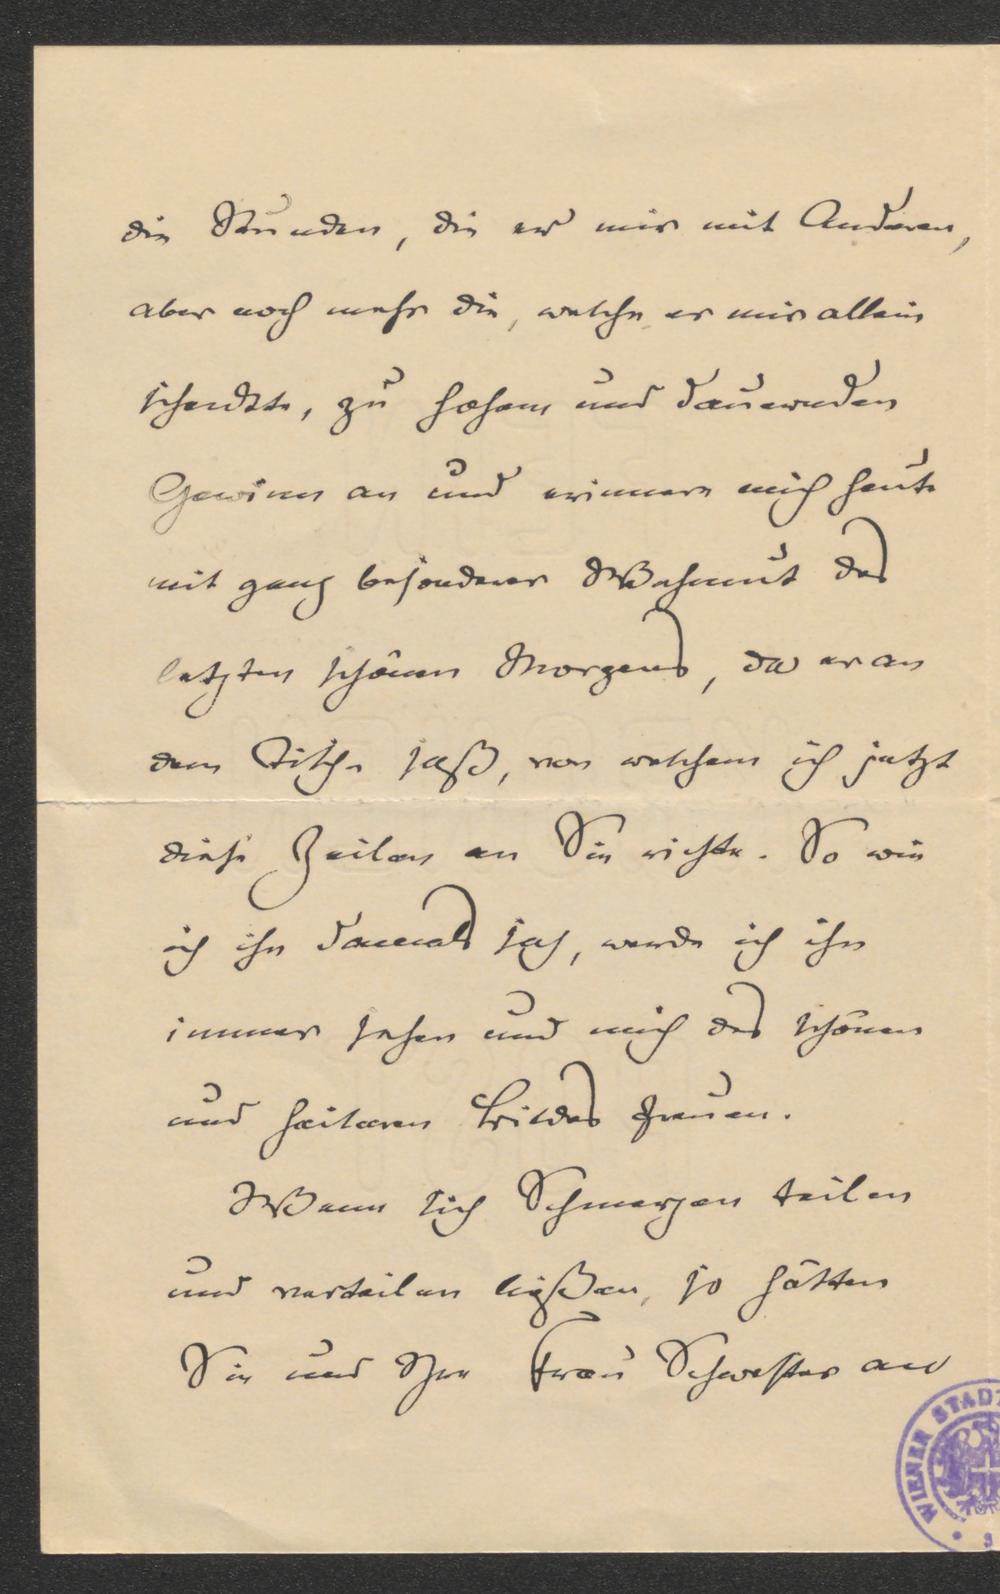 die Stunden, die er mir mit Anderen,
aber noch mehr die, welche er mir allein
schenkte, zu hohem und dauernden
Gewinn an und erinnere mich heute
mit ganz besonderer Wehmut des
letzten schönen Morgens, da er an
dem Tische saß, von welchem ich jetzt
diese Zeilen an Sie richte. So wie
ich ihn damals sah, werde ich ihn
immer sehen und mich des schönen
und heiteren Bildes freuen.
Wenn sich Schmerzen teilen
und verteilen ließen, so hätten
Sie und Ihre Frau Schwester an
WIENER STADT